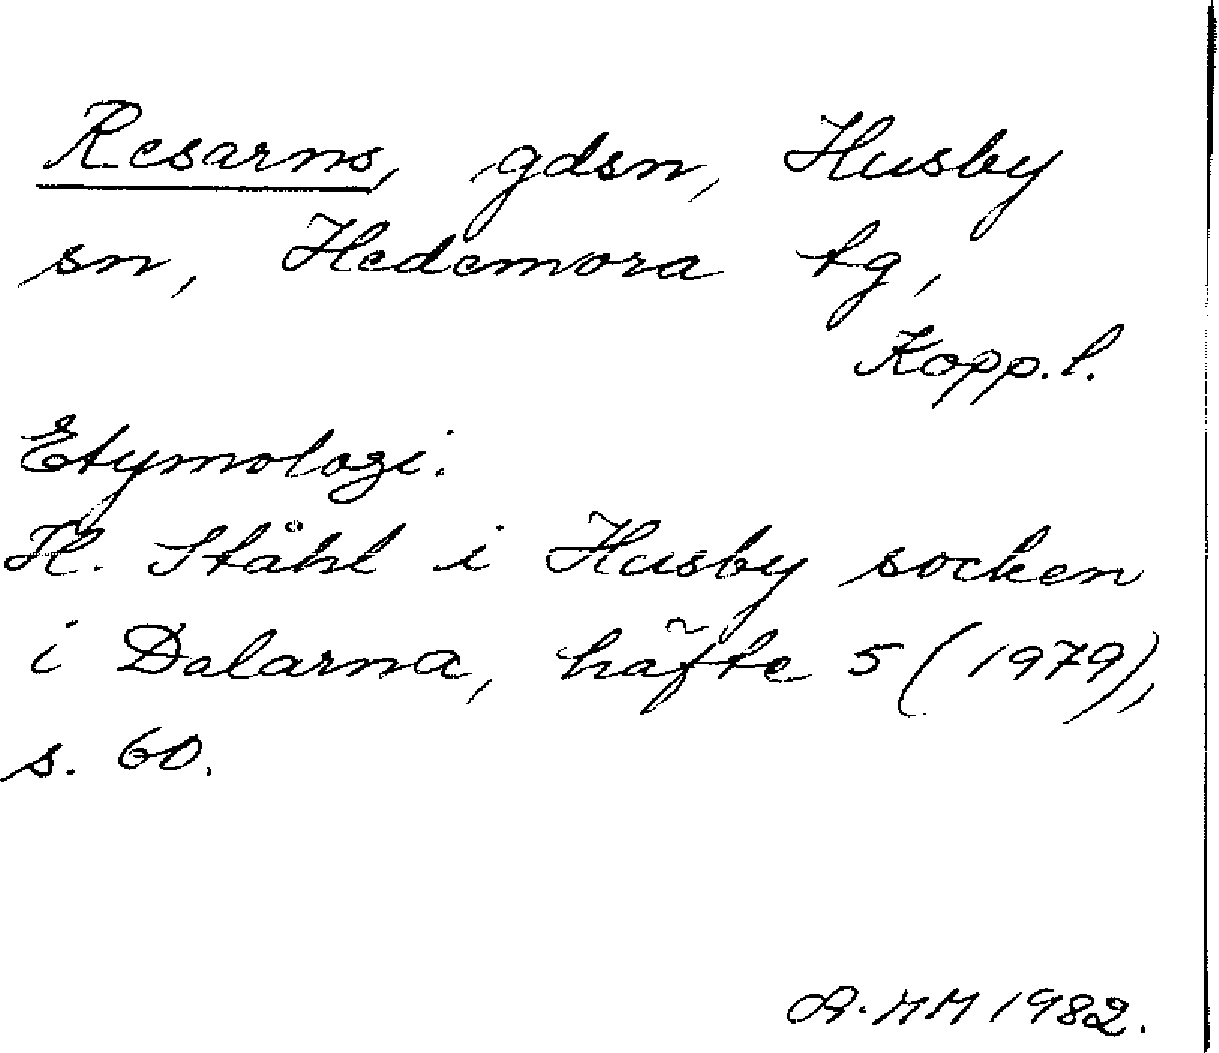 Resarns, gdsn, Husby
sn, Hedemora tg,
Kopp.l.
Etymologi.
H. Ståhl i Husby socken
i Dalarna, häfte 5 (1979),
s. 60.
A.HM 1982.